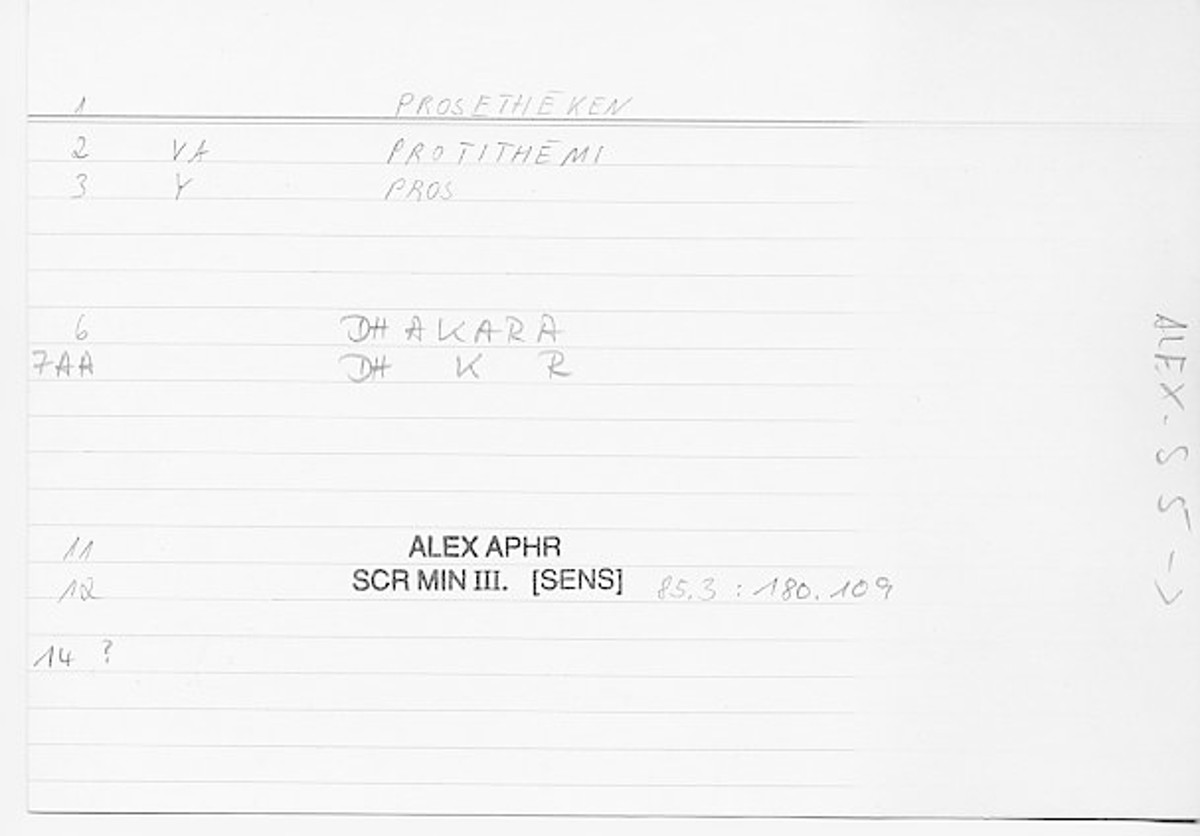 1 PROSETHĒKEN
2 VA PROTITHĒMI
3 Y PROS
6 DHAKARA
7AA DH K R
11 ALEX APHR
12 SCR MIN III. [SENS] 85.3 : 180.109
14 ?
ALEX. S 5 →